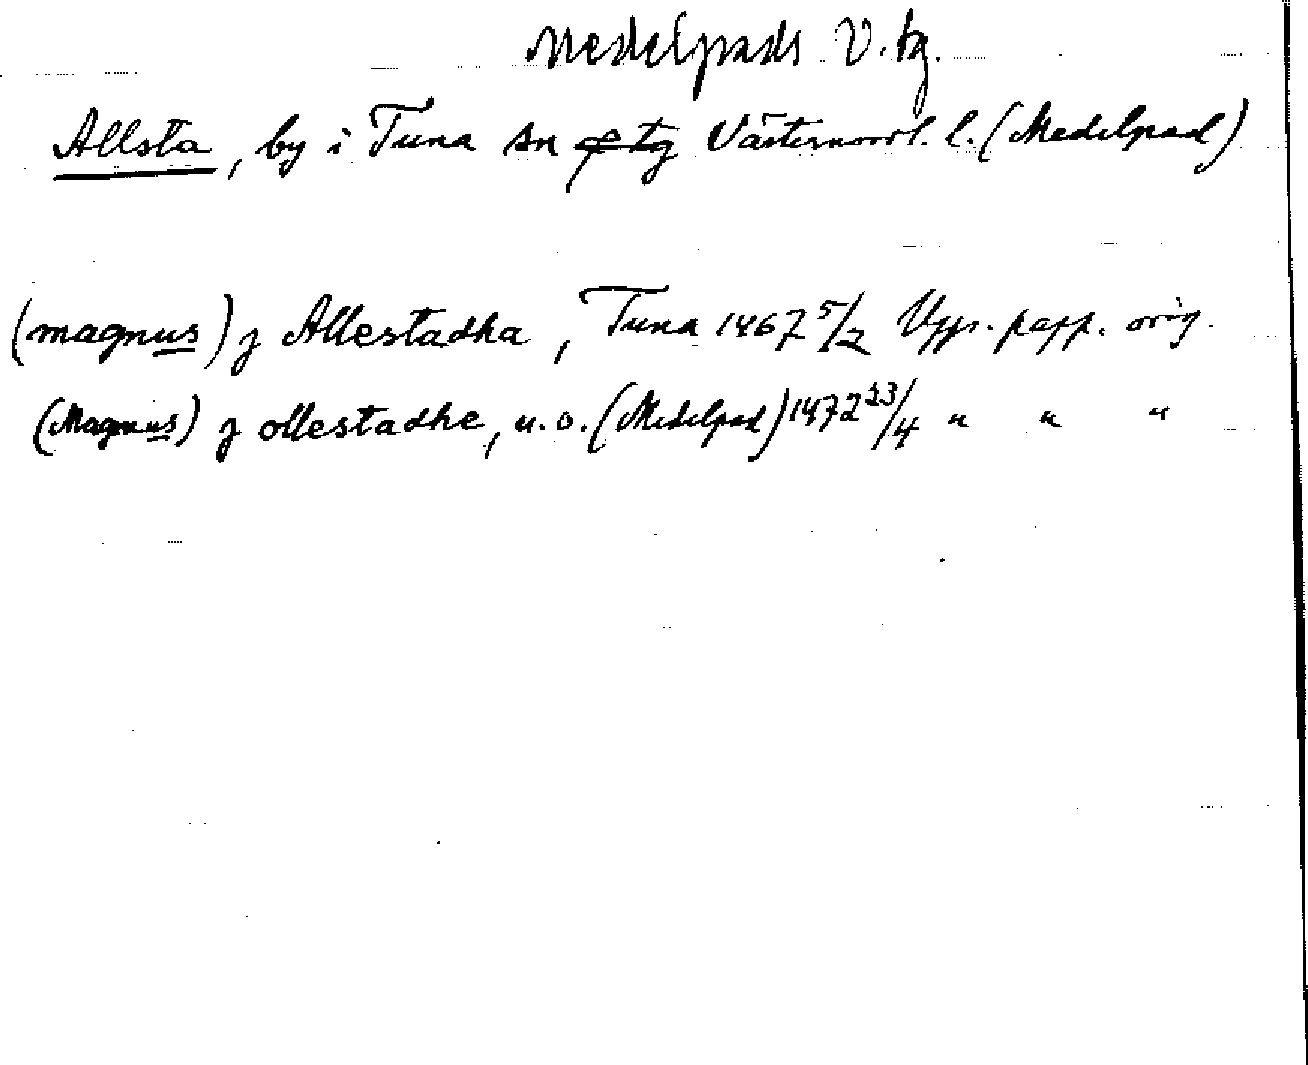 Medelpads V. tg.
Allsta, by i Tuna sn tg Västernorrl. l. (Medelpad)
(magnus) j Allestadha, Tuna 1467 5/2 Upps. papp. orig.
(Magnus) j ollestadhe, u.o. (Medelpad) 1472 23/4 " " "